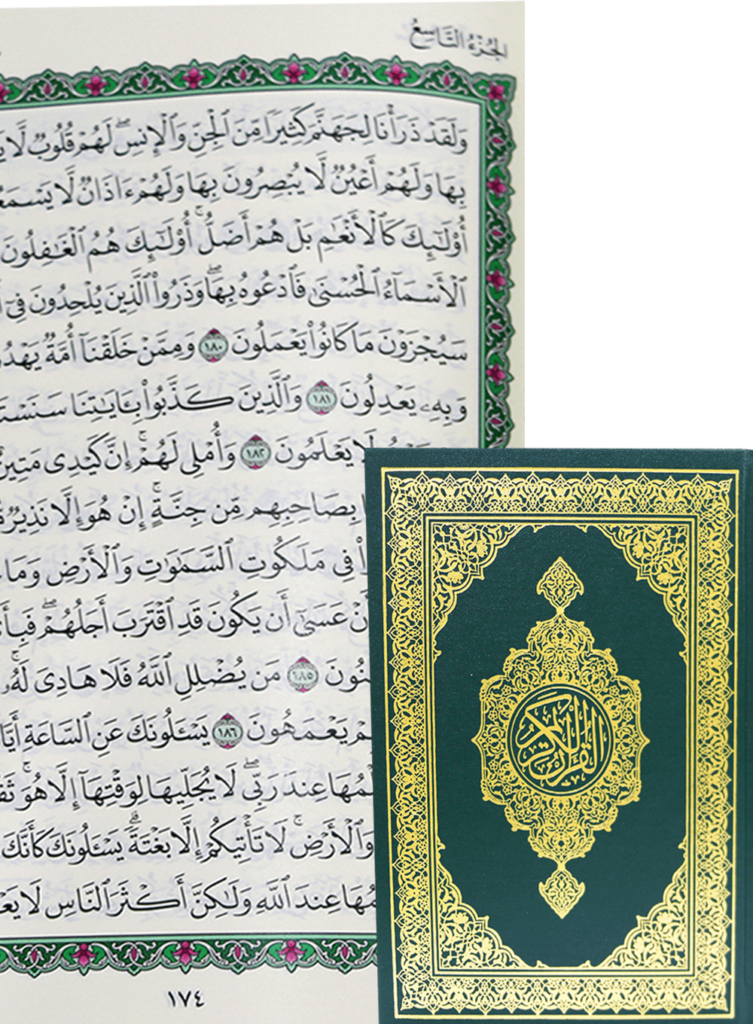 الجُزْءُ التَّاسِعُ
وَلَقَدْ ذَرَأْنَا لِجَهَنَّمَ كَثِيرًا مِّنَ ٱلْجِنِّ وَٱلْإِنسِۖ لَهُمْ قُلُوبٌ لَّا
بِهَا وَلَهُمْ أَعْيُنٌ لَّا يُبْصِرُونَ بِهَا وَلَهُمْ ءَاذَانٌ لَّا يَسْمَعُ
أُوْلَـٰٓئِكَ كَٱلْأَنْعَـٰمِ بَلْ هُمْ أَضَلُّۚ أُوْلَـٰٓئِكَ هُمُ ٱلْغَـٰفِلُونَ
ٱلْأَسْمَآءُ ٱلْحُسْنَىٰ فَٱدْعُوهُ بِهَاۖ وَذَرُواْ ٱلَّذِينَ يُلْحِدُونَ فِىٓ
سَيُجْزَوْنَ مَا كَانُواْ يَعْمَلُونَ ١٨٠ وَمِمَّنْ خَلَقْنَآ أُمَّةٌ يَهْدُ
وَبِهِۦ يَعْدِلُونَ ١٨١ وَٱلَّذِينَ كَذَّبُواْ بِـَٔايَـٰتِنَا سَنَسْتَ
لَا يَعْلَمُونَ ١٨٢ وَأُمْلِى لَهُمْۚ إِنَّ كَيْدِى مَتِينٌ
بِصَاحِبِهِم مِّن جِنَّةٍۚ إِنْ هُوَ إِلَّا نَذِيرٌ
فِى مَلَكُوتِ ٱلسَّمَـٰوَٰتِ وَٱلْأَرْضِ وَمَا
نْ عَسَىٰٓ أَن يَكُونَ قَدِ ٱقْتَرَبَ أَجَلُهُمْۖ فَبِأَ
نُونَ ١٨٥ مَن يُضْلِلِ ٱللَّهُ فَلَا هَادِىَ لَهُۥۚ
مْ يَعْمَهُونَ ١٨٦ يَسْـَٔلُونَكَ عَنِ ٱلسَّاعَةِ أَيَّا
لْمُهَا عِندَ رَبِّىۖ لَا يُجَلِّيهَا لِوَقْتِهَآ إِلَّا هُوَۚ ثَقُ
وَٱلْأَرْضِۚ لَا تَأْتِيكُمْ إِلَّا بَغْتَةًۗ يَسْـَٔلُونَكَ كَأَنَّكَ
مُهَا عِندَ ٱللَّهِ وَلَـٰكِنَّ أَكْثَرَ ٱلنَّاسِ لَا يَعْ
١٧٤
القرآن الكريم